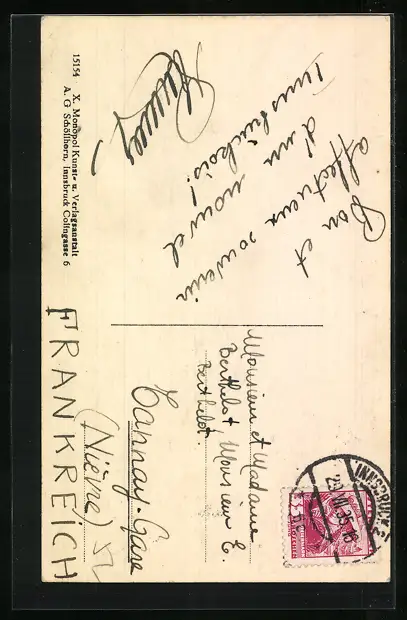 Bon et
affectueux souvenir
d'un nouvel
Innsbruckois!
15154 X. Monopol Kunst- u. Verlagsanstalt
A. G Schöllhorn, Innsbruck Colingasse 6
INNSBRUCK
Monsieur et Madame
Berthelot Monsieur E.
Berthelot.
Tannay-Gare
(Nièvre)
FRANKREICH